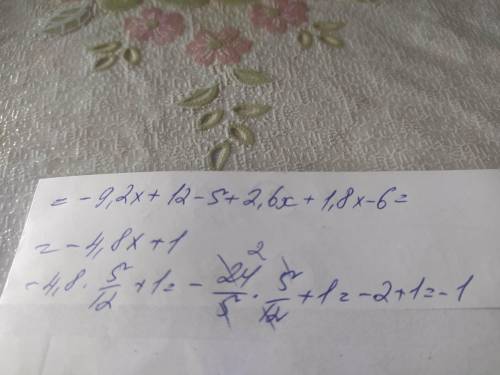 = -9,2x + 12 - 5 + 2,6x + 1,8x - 6 =
= -4,8x + 1
-4,8 · 5/12 + 1 = - 24/5 · 5/12 + 1 = -2 + 1 = -1
2